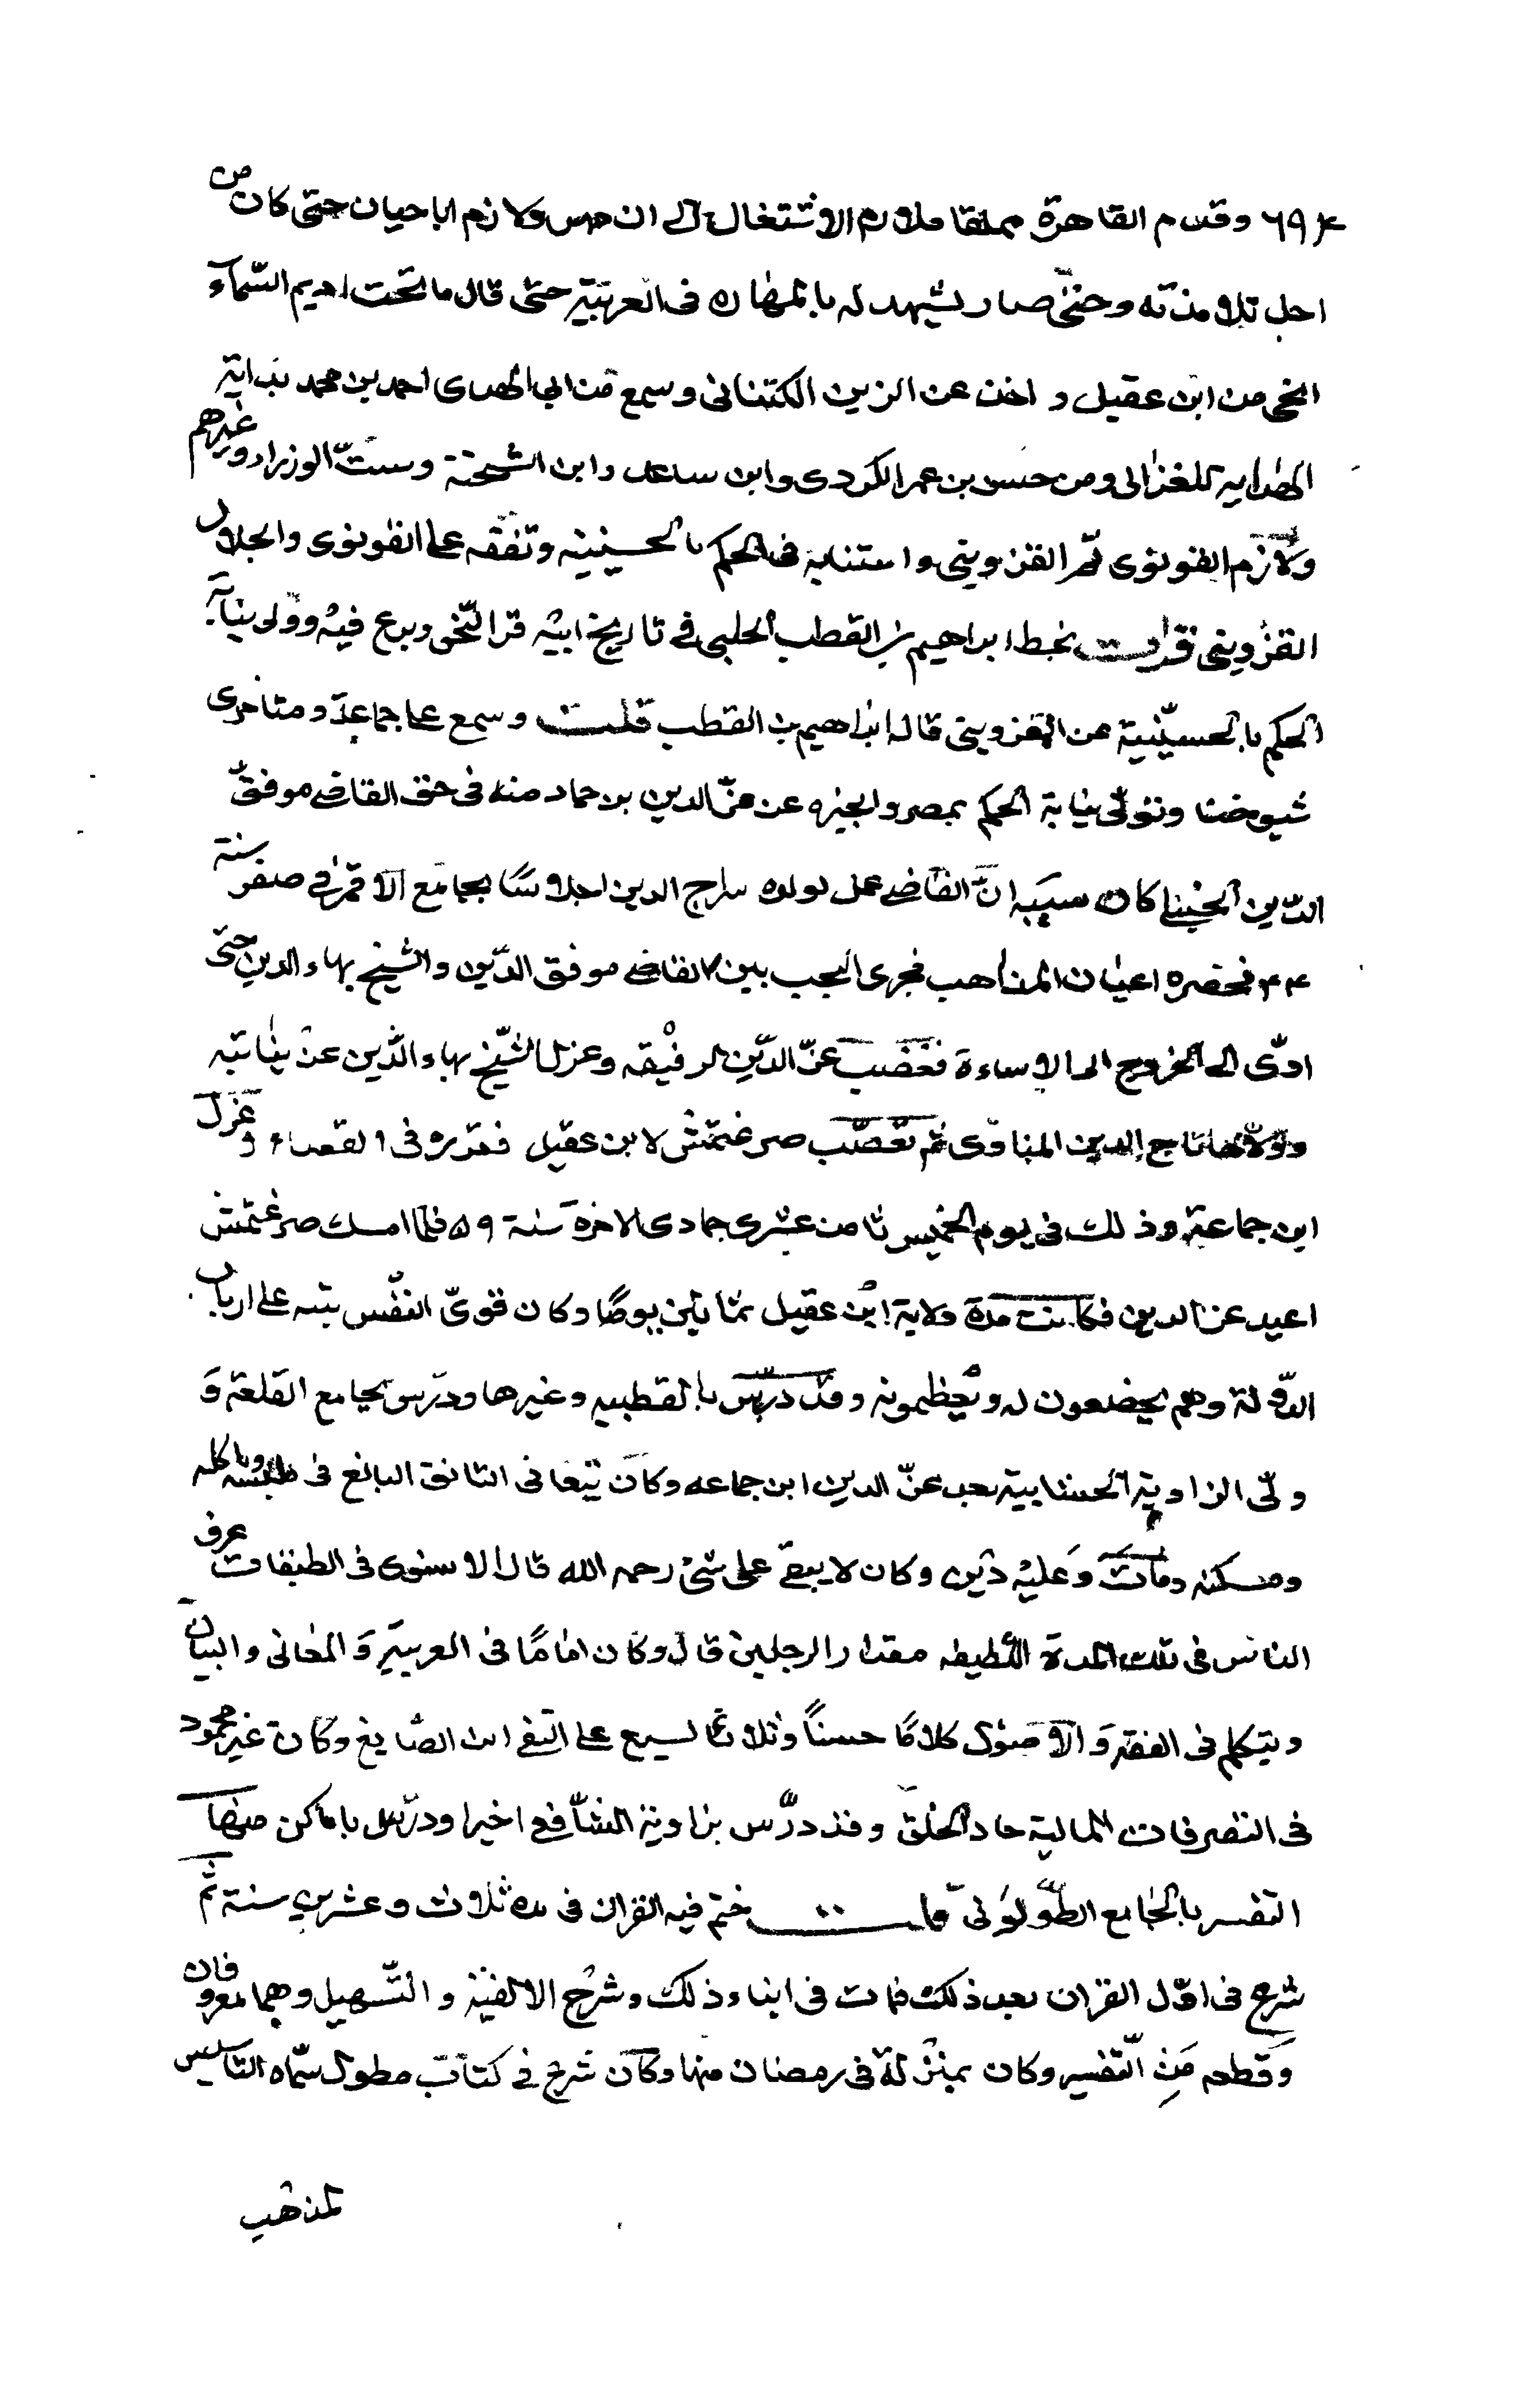 ۶۹۴ وقدم القاهرة مملقا فلازم الاشتغال الى ان مهر ولازم ابا حيان حتى كان من
اجل تلامذته وحتى صار يشهد له بالمهارة فى العربية حتى قال ما تحت اديم السماء
انحى من ابن عقيل و اخذ عن الزين الكتنانى وسمع من ابى الهدى احمد بن محمد بداية
الهداية للغزالى ومن حسن بن عمر الكردى وابن ساعد وابن الشحنة وست الوزراء وغيرهم
ولازم القونوى ثم القزوينى واستنابه فى الحكم بالحسينية وتفقه على القونوى والجلال
القزوينى قرات بخط ابراهيم بن القطب الحلبى فى تاريخ ابيه قرا النحو وبرع فيه وولى نيابة
الحكم بالحسينية عن القزوينى قاله ابراهيم بن القطب قلت وسمع على جماعة ومتاخرى
شيوخنا وتولى نيابة الحكم بمصر والجيزه عن عز الدين بن جماد منه فى حق القاضى موفق
الدين الحنبلى كان سببه ان القاضى عمل لولده سراج الدين اجلاسا بجامع الاقمر فى صفر سنة
۴۴ فحضره اعيان المذاهب فجرى البحب بين القاضى موفق الدين والشيخ بهاء الدين حتى
ادى الى الخروج الى الاساءة فغضب عز الدين لرفيقه وعزل الشيخ بهاء الدين عن نيابته
وولاها تاج الدين المناوى ثم تعصب صرغتمش لابن عقيل فقرره فى القضاء وعزل
ابن جماعة وذلك فى يوم الخميس ثامن عشرى جمادى الاخرة سنة ۵۹ فلما امسك صرغتمش
اعيد عز الدين فكانت مدة ولاية ابن عقيل ثمانين يوما وكان قوى النفس يتيه على ارباب
الدولة وهم يخضعون له ويعظمونه وقد درس بالقطبيه وغيرها ودرس بجامع القلعة و
ولى الزاوية الخشابية بعد عز الدين ابن جماعه وكان يتعانى التانق البالغ فى ملبسه وماكله
ومسكنه ومات وعليه دين وكان لا يبقى على شئ رحمه الله قال الاسنوى فى الطبقات عرف
الناس فى تلك المدة اللطيفه مقدار الرجلين قال وكان اماما فى العربية والمعانى والبيان
ويتكلم فى الفقه والاصول كلاما حسنا وتلا بالسبع على التقى ابن الصايغ وكان غير محمود
فى التصرفات المالية حاد الخلق وقد درس بزاوية الشافعى اخيرا ودرس باماكن منها
التفسير بالجامع الطولونى قلت ختم فيه القران فى مدة ثلاث وعشرين سنة ثم
شرع فى اول القران بعد ذلك فمات فى اثناء ذلك وشرح الالفية والتسهيل وهما معروفان
وقطعه من التفسير وكان بمنزلة فى رمضان منها وكان شرع فى كتاب مطول سماه التاسيس
لمذهب